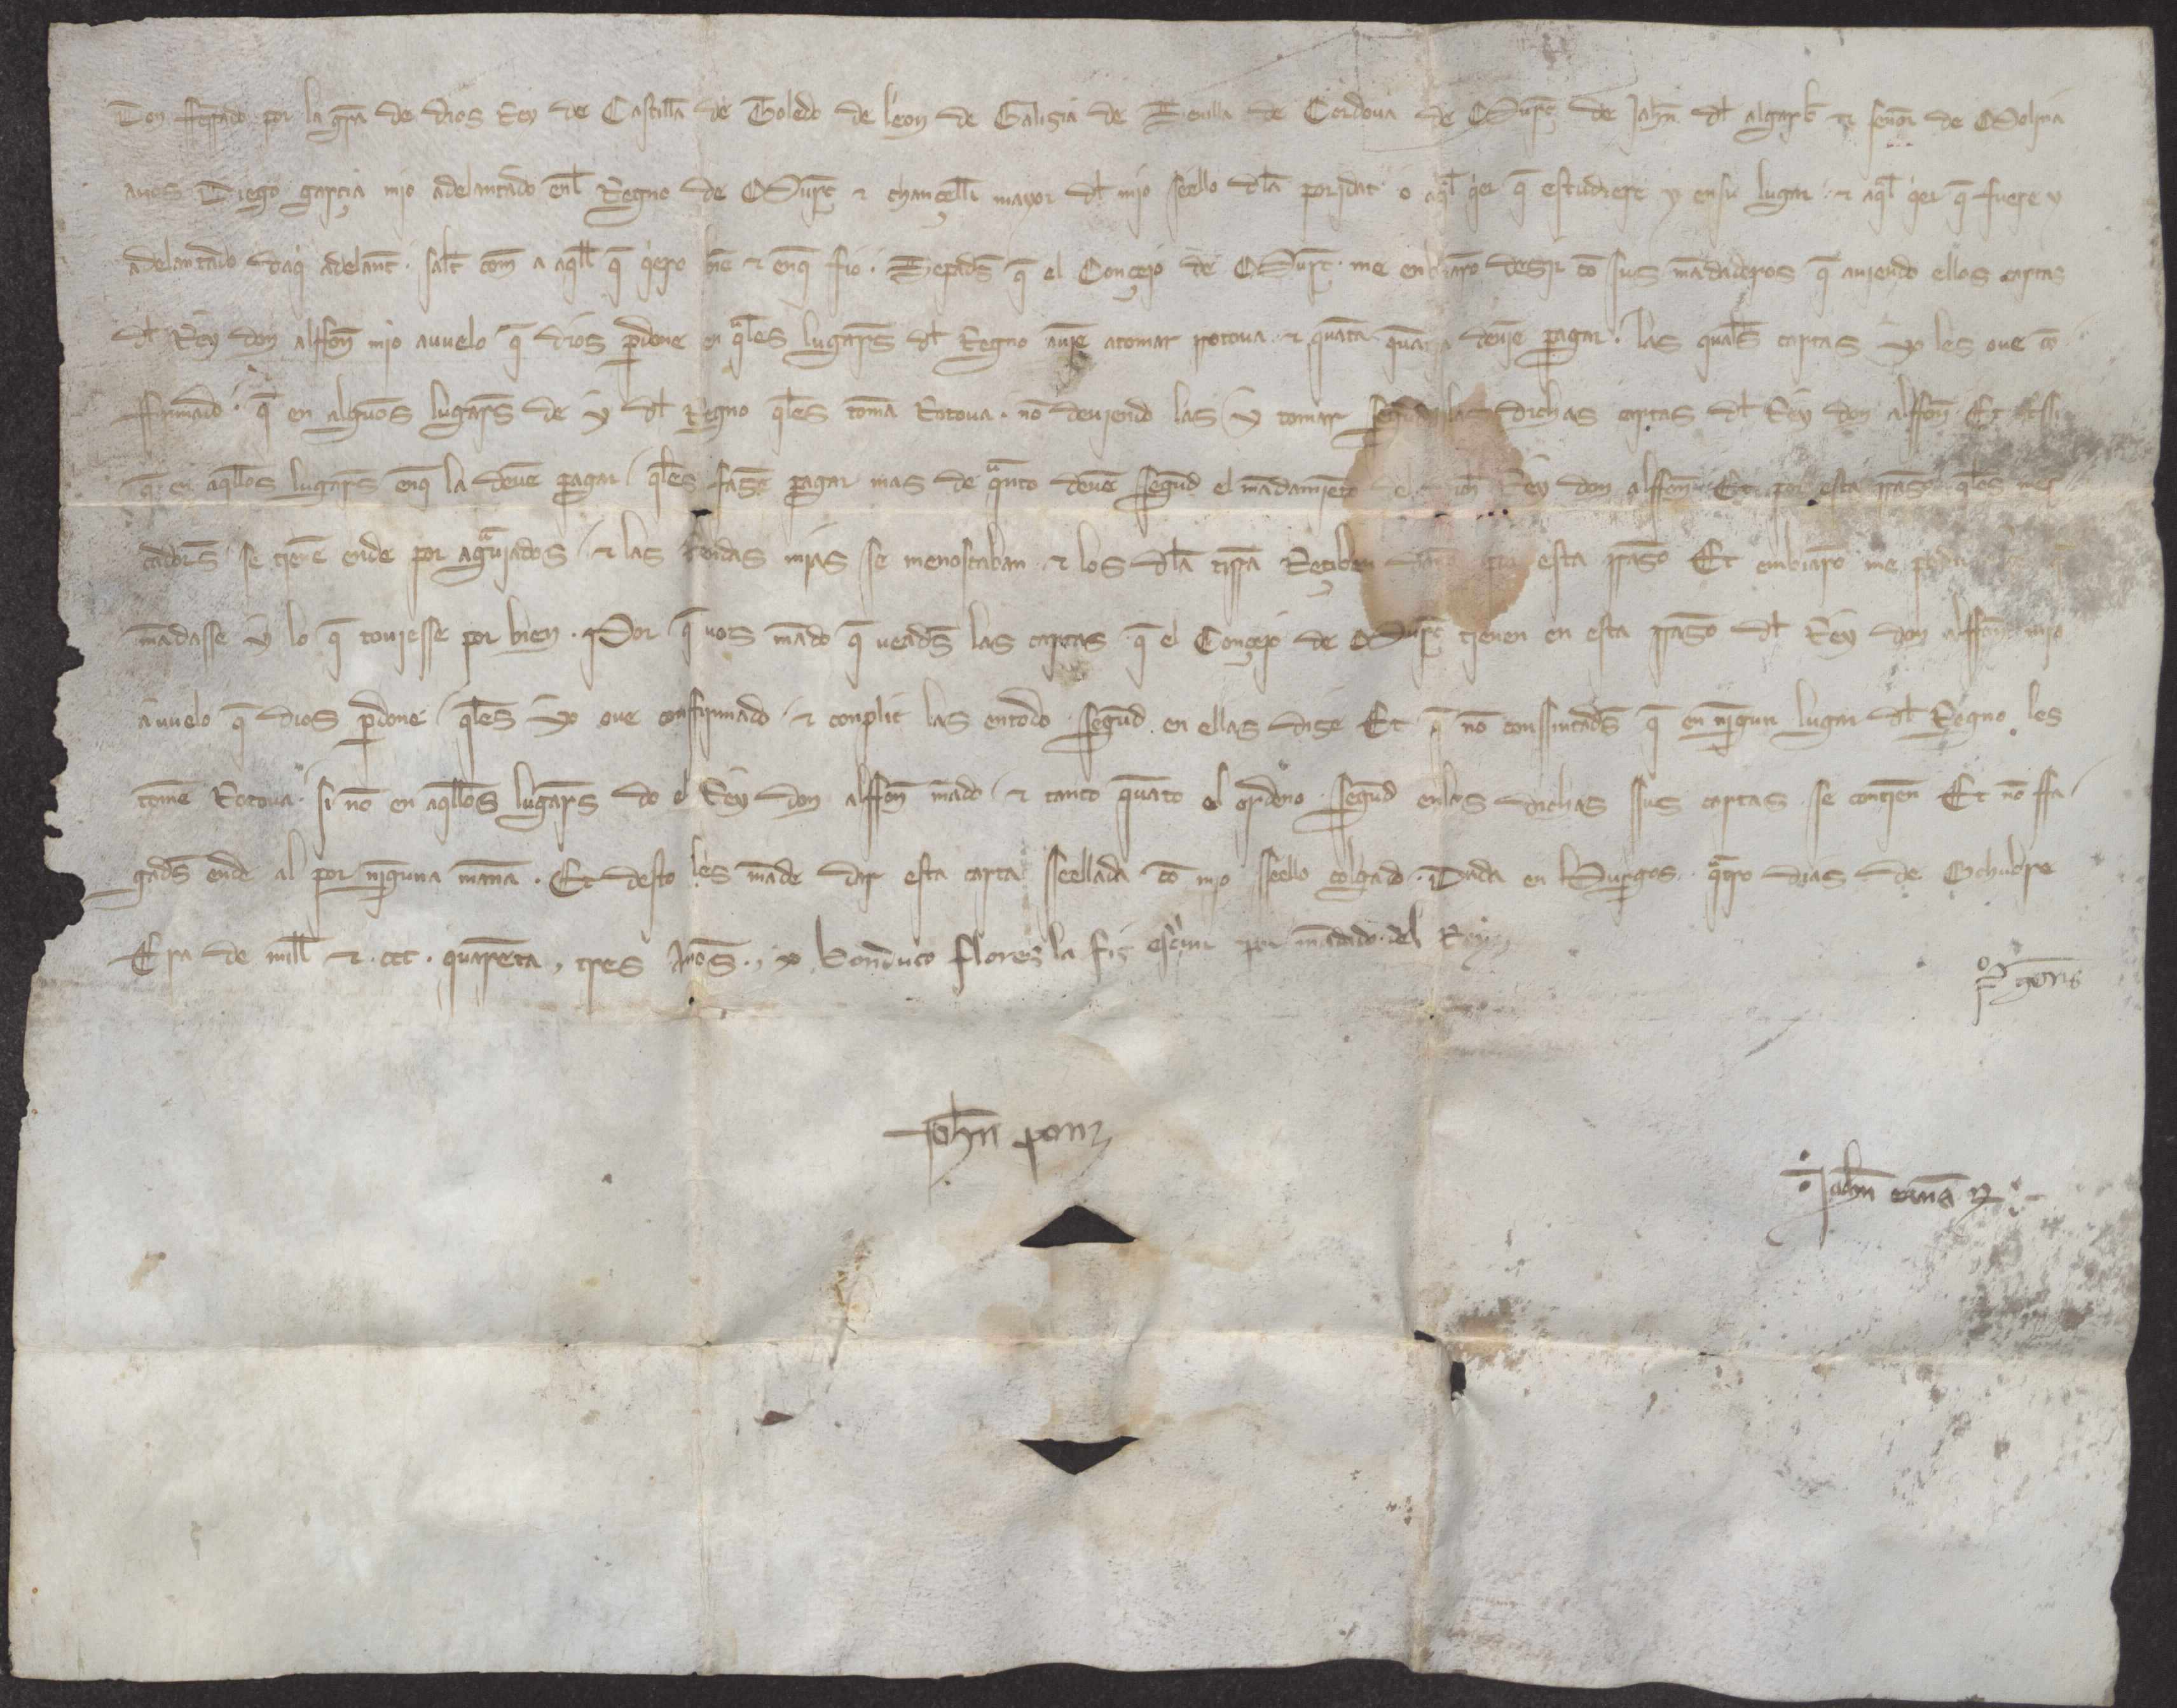 Don Ferrãdo por la gr̃a de dios Rey de Castiella de Toledo de leon de Gallizia de Seuilla de Cordoua de Murç de Jahñ dl algarbe et señor de Molina
auos Diego garçia mio adelantado enl Regno de Murç et chançeller mayor dl mio seello dla poridat o aql̃ q̃er q̃ estudiere y en su lugar et aql̃ q̃er q̃ fuere y
adelantado daq̃ adelant. salt com̃ a aqll̃ q̃ q̃ero biẽ et enq̃ fio. Sepads̃ q̃ el Conçejo de Murç me enbiarõ dezir cõ sus mãdaderos q̃ auiendo ellos cartas
dl Rey don alffoñ mio auuelo q̃ dios p̃done en q̃les lugars̃ dl Regno auiẽ atomar rrotoua et quãta quãtia deuiẽ pagar. las quals̃ cartas yo les oue cõ
firmado. q̃ en algũos lugars̃ de y dl Regno q̃les toman Rotoua. nõ deuiendo las y tomar segund las dichas cartas dl Rey don alffoñ Et otssi
q̃ en aqllos̃ lugars̃ enq̃ la deuẽ pagar q̃les fazẽ pagar mas de q̃nto deuẽ segũd el mãdamiẽto del dicho Rey don alffoñ Et por esta rrazõ q̃los mer
cadors̃ se tienẽ ende por agrauiados et las rendas mias se menoscaban et los dla tirra Reçiben daño por esta rrazõ Et enbiarõ me pedir q̃
mãdasse y lo q̃ touiesse por bien. Por q̃ uos mãdo q̃ ueads̃ las cartas q̃ el Conçejo de Murç tienen en esta rrazõ dl Rey don alffoñ mio
auuelo q̃ dios p̃done q̃les yo oue confirmado et conplit las entodo segũd en ellas dize Et q̃ nõ conssintads̃ q̃ en nĩgun lugar dl Regno les
tomẽ Rotoua. si nõ en aqllos̃ lugars̃ do el Rey don alffoñ mãdo et tanto quãto el ordeno segũd enlas dichas ssus cartas se contien Et nõ ffa
gads̃ ende al por nĩguna mañа. Et desto les mãde dar esta carta sseellada cõ mio sseello colgado. Dada en Burgos. q̃tro dias de Ochubre
Era de mill et ccc. quarẽta, tres Años. yo Bonduco florez la fiz escriuir por mãdado del Rey
Johñ pérez